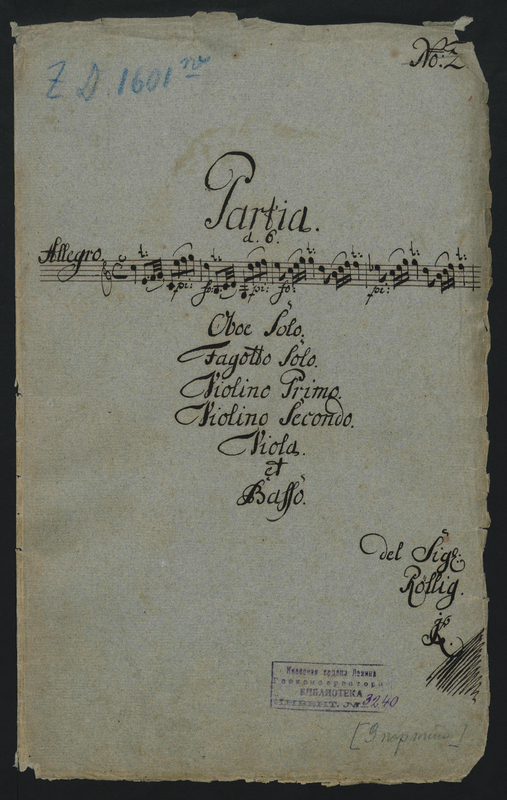 No: 2
Z D. 1601
Partia.
a. 6.
Allegro.
t: t: t: t: t: t:
pi: fo: pi: fo: pi:
Oboe Solo.
Fagotto Solo.
Violino Primo.
Violino Secondo.
Viola.
et
Basso.
del Sigr:
Röllig.
Киевская ордена Ленина
Госконсерватория
БИБЛИОТЕКА
ИНВЕНТ. № 3240